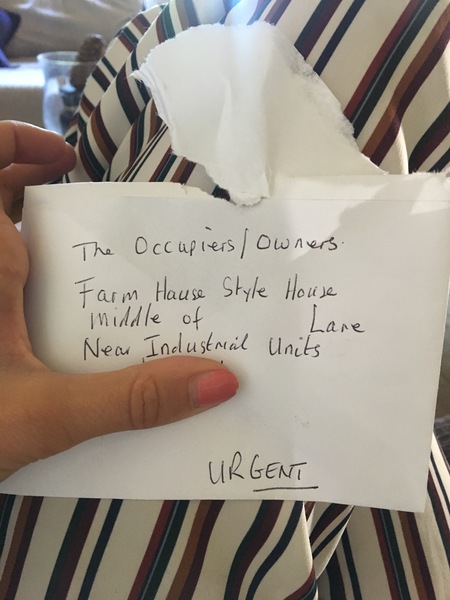 The Occupiers/Owners.
Farm House Style House
Middle of Lane
Near Industrial Units
URGENT